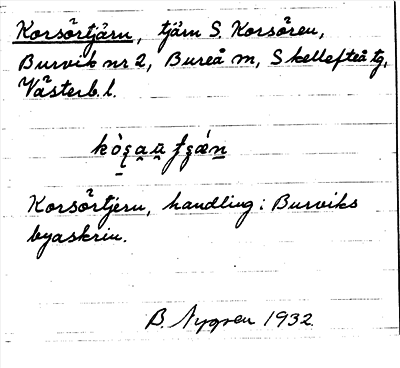 Korsörtjärn, tjärn S. Korsören,
Burvik nr 2, Bureå sn, Skellefteå tg,
Västerb. l.
Korsörtjern, handling: Burviks
byaskrin.
B. Nygren 1932.